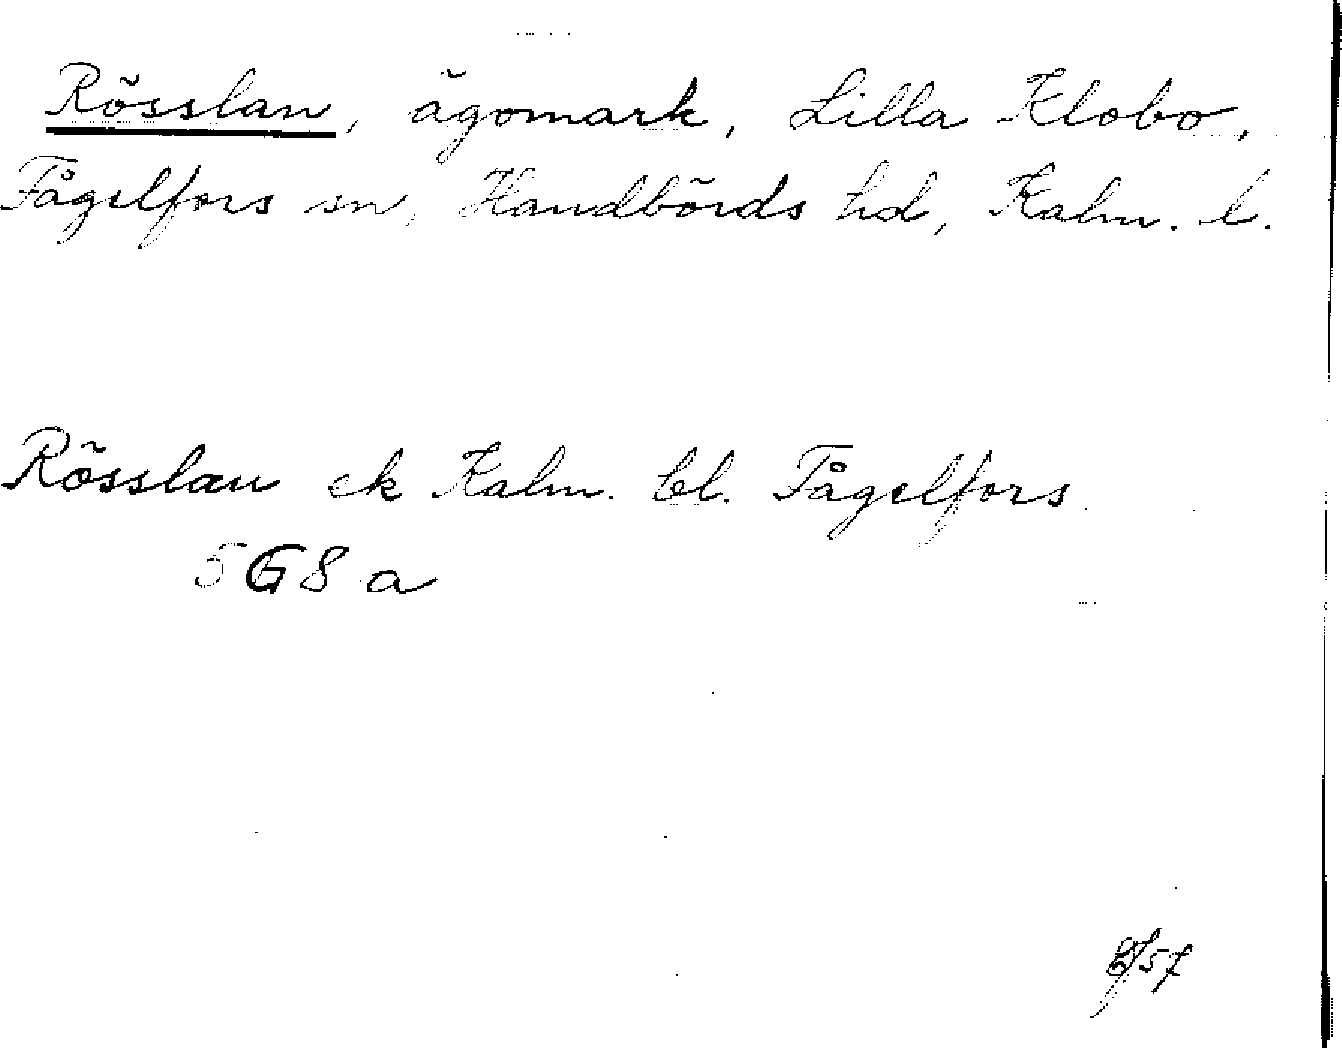 Rösslan, ägomark, Lilla Klobo,
Fågelfors sn, Handbörds hd, Kalm. l.
Rösslan ek Kalm. bl. Fågelfors
5G8 a